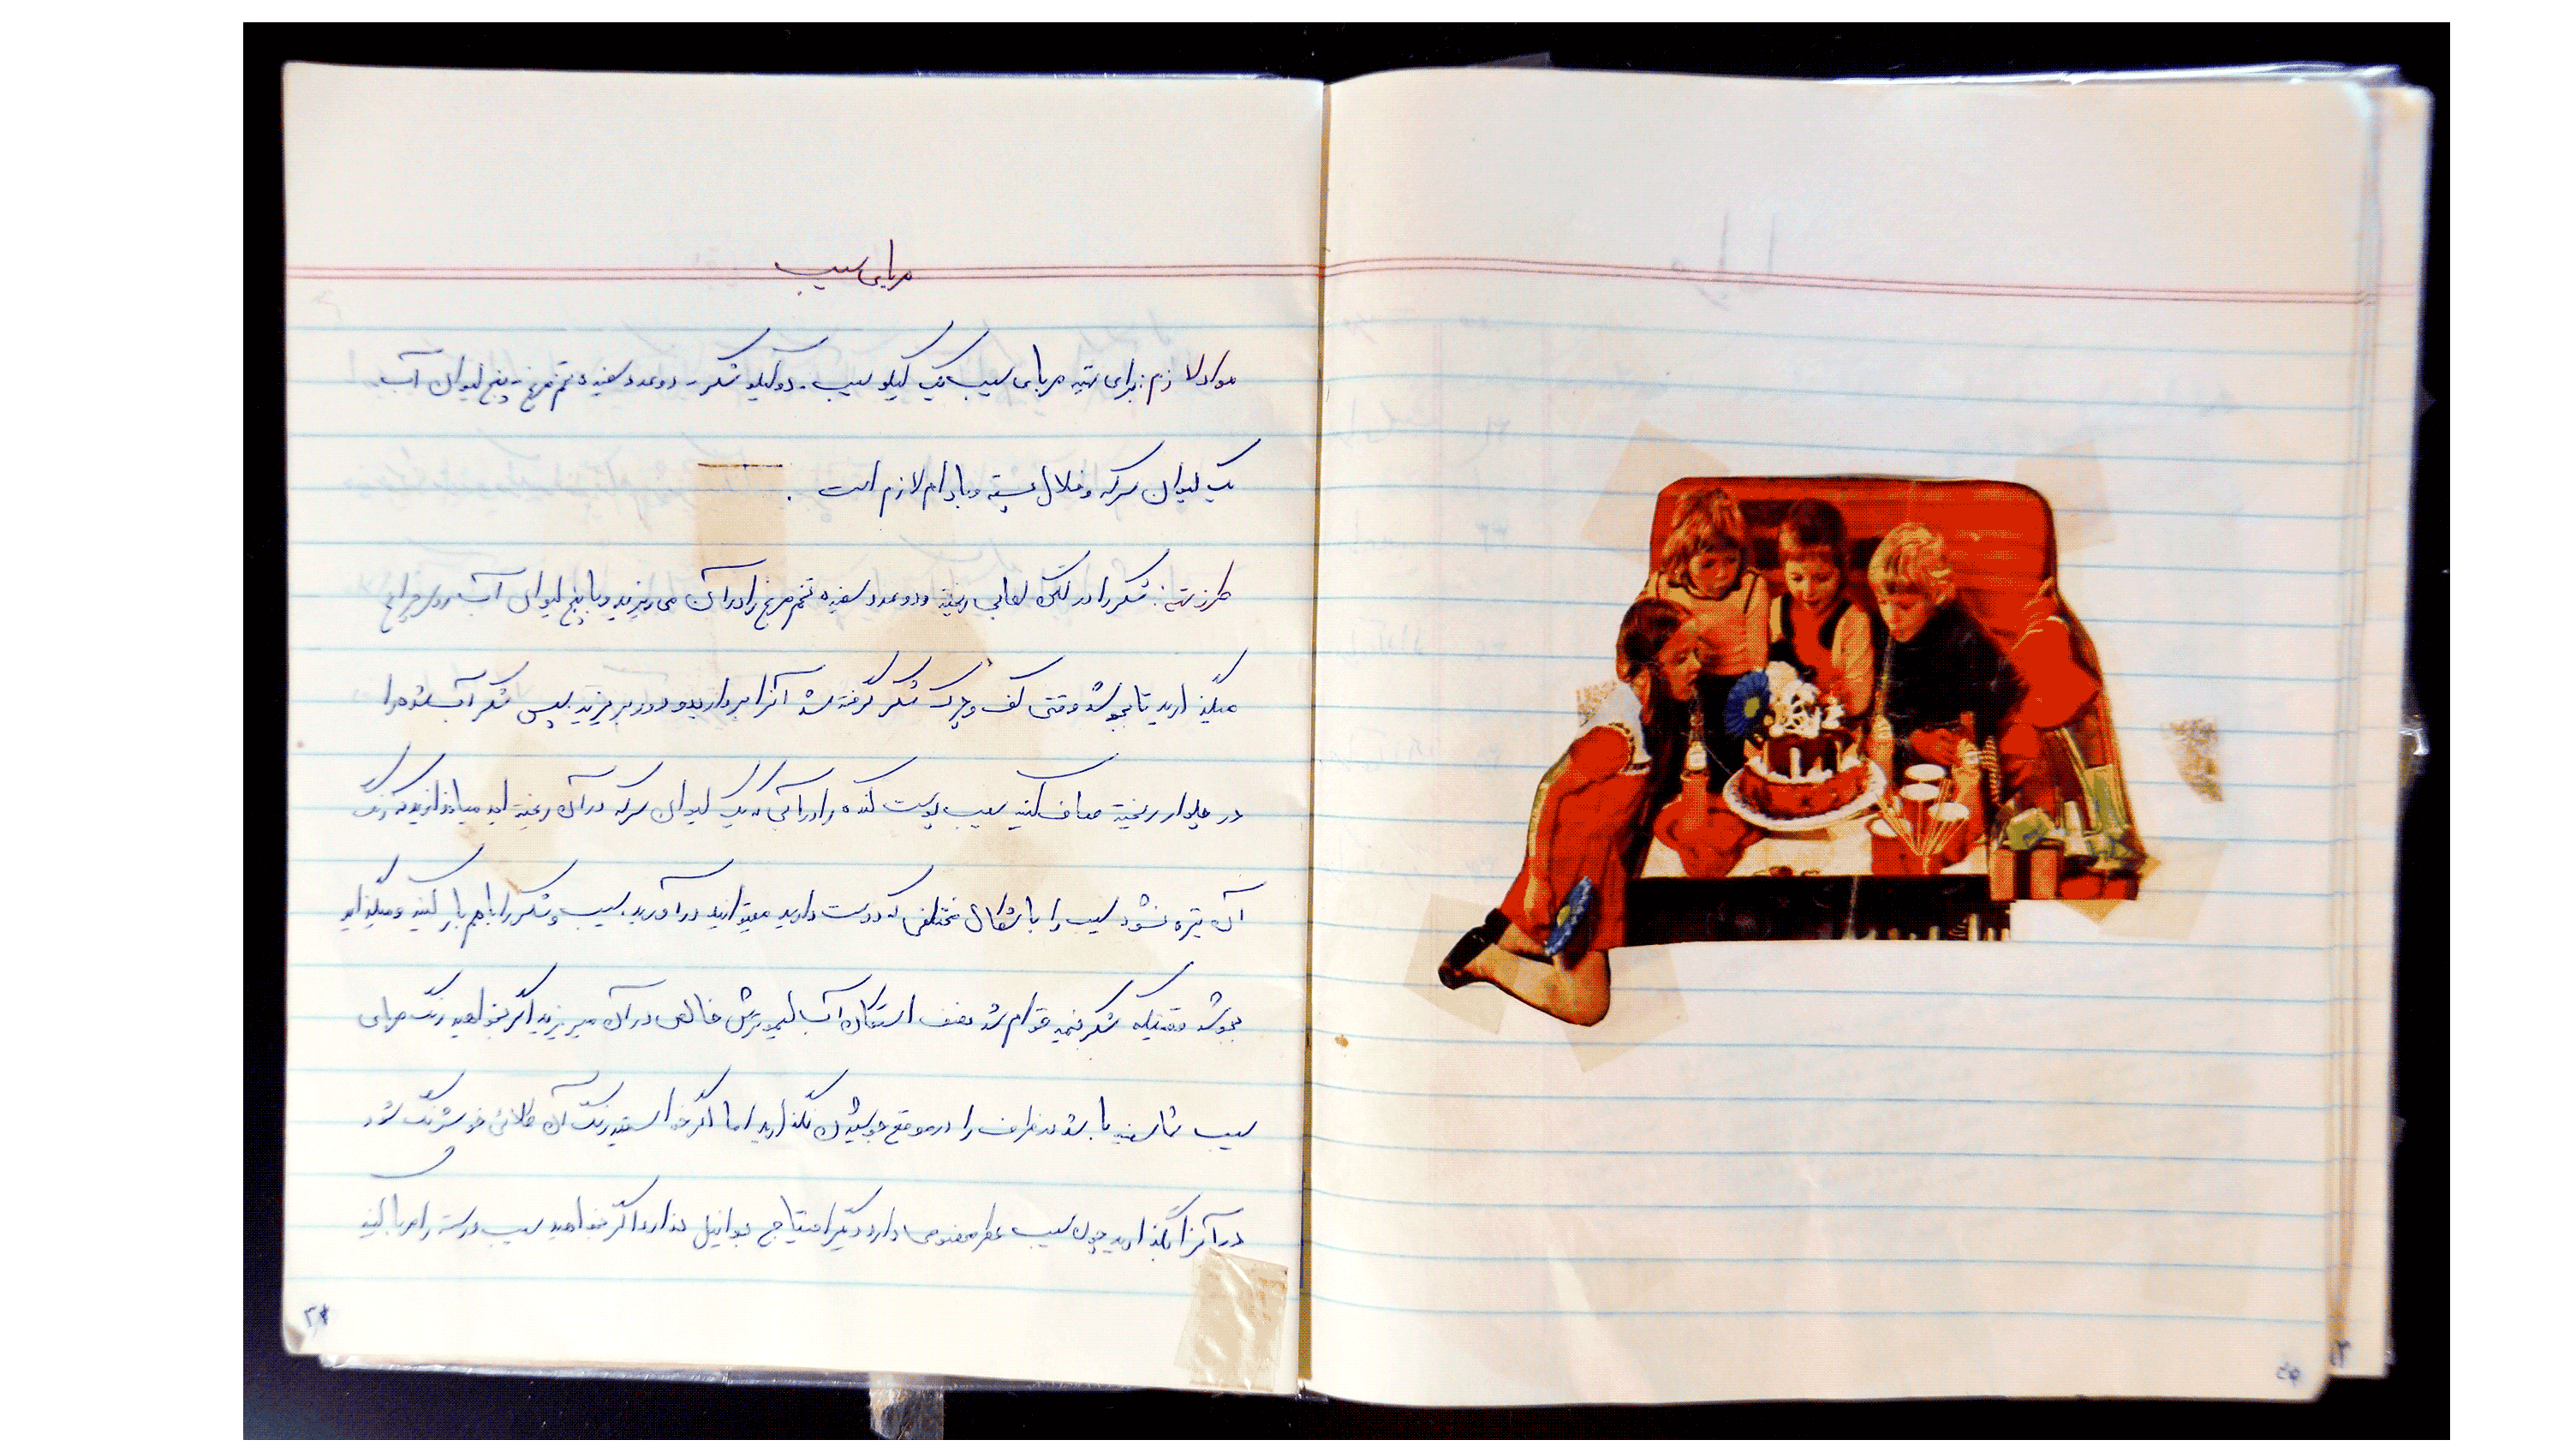 مربای سیب
مواد لازم: برای تهیه مربای سیب یک کیلو سیب - دو کیلو شکر - دو عدد سفیده تخم مرغ - پنج لیوان آب
یک لیوان سرکه و خلال پسته و بادام لازم است.
طرز تهیه: شکر را در لگن لعابی ریخته و دو عدد سفیده تخم مرغ را در آن می ریزید و با پنج لیوان آب روی چراغ
میگذارید تا بجوشد وقتی کف و چرک شکر گرفته شد آنرا بردارید و دور بریزید سپس شکر آب شده را
در چلوار ریخته صاف کنید سیب پوست کنده را در آبی که یک لیوان سرکه در آن ریخته اید میاندازید که رنگ
آن تیره نشود سیب را با شکال مختلفی که دوست دارید میتوانید در آورید. سیب و شکر را باهم بار کنید و میگذارید
بجوشد وقتیکه شکر نیمه قوام شد نصف استکان آب لیموترش خالص در آن میریزید اگر بخواهید رنگ مربای
سیب شما سفید باشد در ظرف را در موقع جوشیدن نگذارید اما اگر خواستید رنگ آن طلائی خوشرنگ شود
در آنرا بگذارید چون سیب عطر مخصوصی دارد دیگر احتیاج بوانیل ندارد اگر بخواهید سیب درسته را مربا کنید